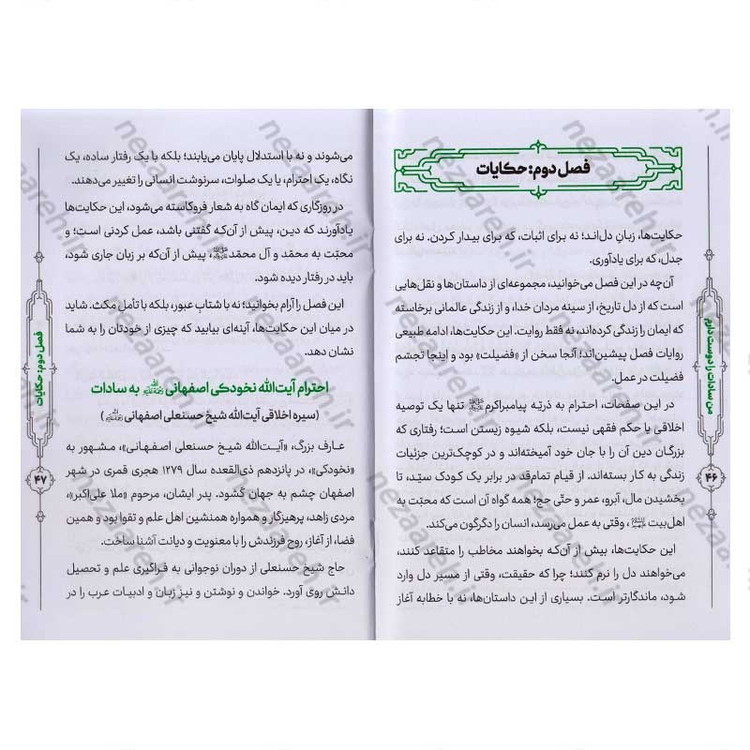 فصل دوم: حکایات
حکایت‌ها، زبانِ دل‌اند؛ نه برای اثبات، که برای بیدار کردن. نه برای
جدل، که برای یادآوری.
آن‌چه در این فصل می‌خوانید، مجموعه‌ای از داستان‌ها و نقل‌هایی
است که از دل تاریخ، از سینه مردان خدا، و از زندگی عالمانی برخاسته
که ایمان را زندگی کرده‌اند، نه فقط روایت. این حکایت‌ها، ادامه طبیعی
روایات فصل پیشین‌اند؛ آنجا سخن از «فضیلت» بود و اینجا تجسّم
فضیلت در عمل.
در این صفحات، احترام به ذرّیه پیامبراکرم ﷺ تنها یک توصیه
اخلاقی یا حکم فقهی نیست، بلکه شیوه زیستن است؛ رفتاری که
بزرگان دین آن را با جان خود آمیخته‌اند و در کوچک‌ترین جزئیات
زندگی به کار بسته‌اند. از قیام تمام‌قد در برابر یک کودک سیّد، تا
بخشیدن مال، آبرو، عمر و حتّی حج؛ همه گواه آن است که محبّت به
اهل‌بیت، وقتی به عمل می‌رسد، انسان را دگرگون می‌کند.
این حکایت‌ها، بیش از آن‌که بخواهند مخاطب را متقاعد کنند،
می‌خواهند دل را نرم کنند؛ چرا که حقیقت، وقتی از مسیر دل وارد
شود، ماندگارتر است. بسیاری از این داستان‌ها، نه با خطابه آغاز
من سادات را دوست دارم
۴۶
می‌شوند و نه با استدلال پایان می‌یابند؛ بلکه با یک رفتار ساده، یک
نگاه، یک احترام، یا یک صلوات، سرنوشت انسانی را تغییر می‌دهند.
در روزگاری که ایمان گاه به شعار فروکاسته می‌شود، این حکایت‌ها
یادآورند که دین، پیش از آن‌که گفتنی باشد، عمل کردنی است؛ و
محبّت به محمّد و آل محمّد، پیش از آن‌که بر زبان جاری شود،
باید در رفتار دیده شود.
این فصل را آرام بخوانید؛ نه با شتابِ عبور، بلکه با تأمل مکث. شاید
در میان این حکایت‌ها، آینه‌ای بیابید که چیزی از خودتان را به شما
نشان دهد.
احترام آیت‌الله نخودکی اصفهانی به سادات
(سیره اخلاقی آیت‌الله شیخ حسنعلی اصفهانی)
عارف بزرگ، «آیت‌الله شیخ حسنعلی اصفهانی»، مشهور به
«نخودکی»، در پانزدهم ذی‌القعده سال ۱۲۷۹ هجری قمری در شهر
اصفهان چشم به جهان گشود. پدر ایشان، مرحوم «ملا علی‌اکبر»،
مردی زاهد، پرهیزگار و همواره همنشین اهل علم و تقوا بود و همین
فضا، از آغاز، روح فرزندش را با معنویت و دیانت آشنا ساخت.
حاج شیخ حسنعلی از دوران نوجوانی به فراگیری علم و تحصیل
دانش روی آورد. خواندن و نوشتن و نیز زبان و ادبیات عرب را در
فصل دوم: حکایات
۴۷
nezaareh.ir